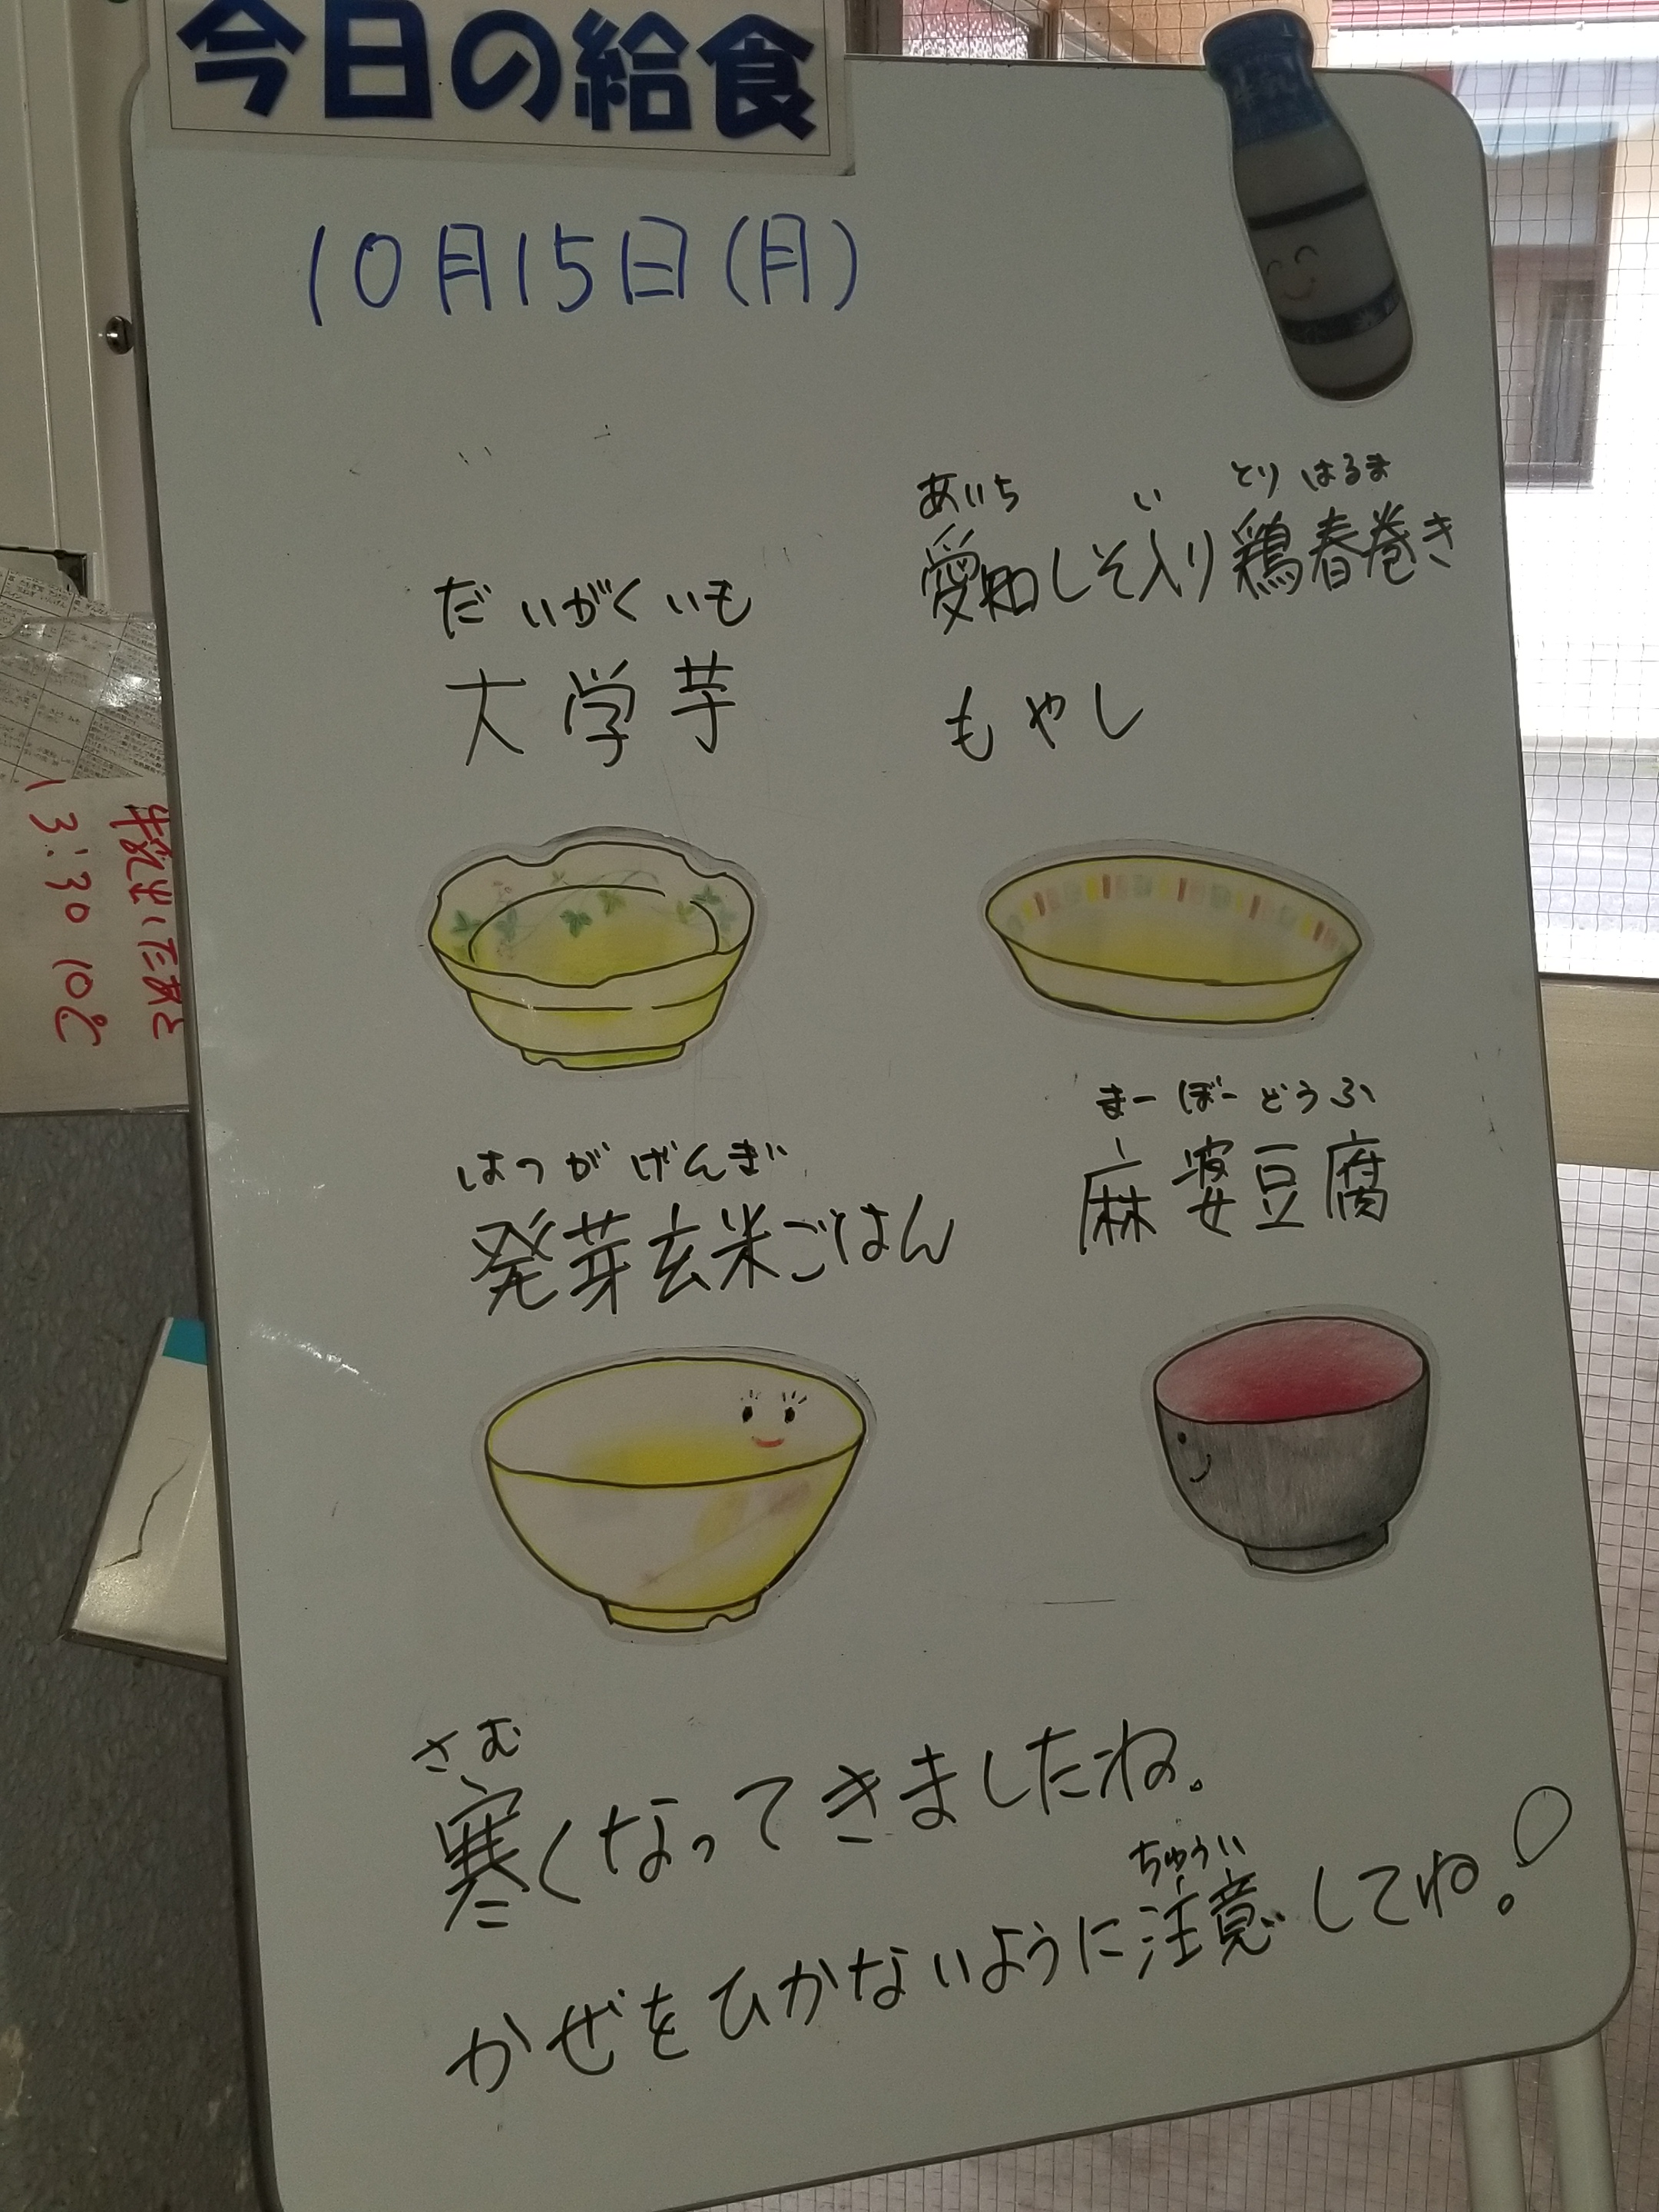 今日の給食
牛乳
10月15日(月)
あいち い とり はるま
愛知しそ入り鶏春巻き
もやし
だいがくいも
大学芋
はつがげんぎ
発芽玄米ごはん
まーぼーどうふ
麻婆豆腐
さむ
寒くなってきましたね。
ちゅうい
かぜをひかないように注意してね。
13:30 10℃